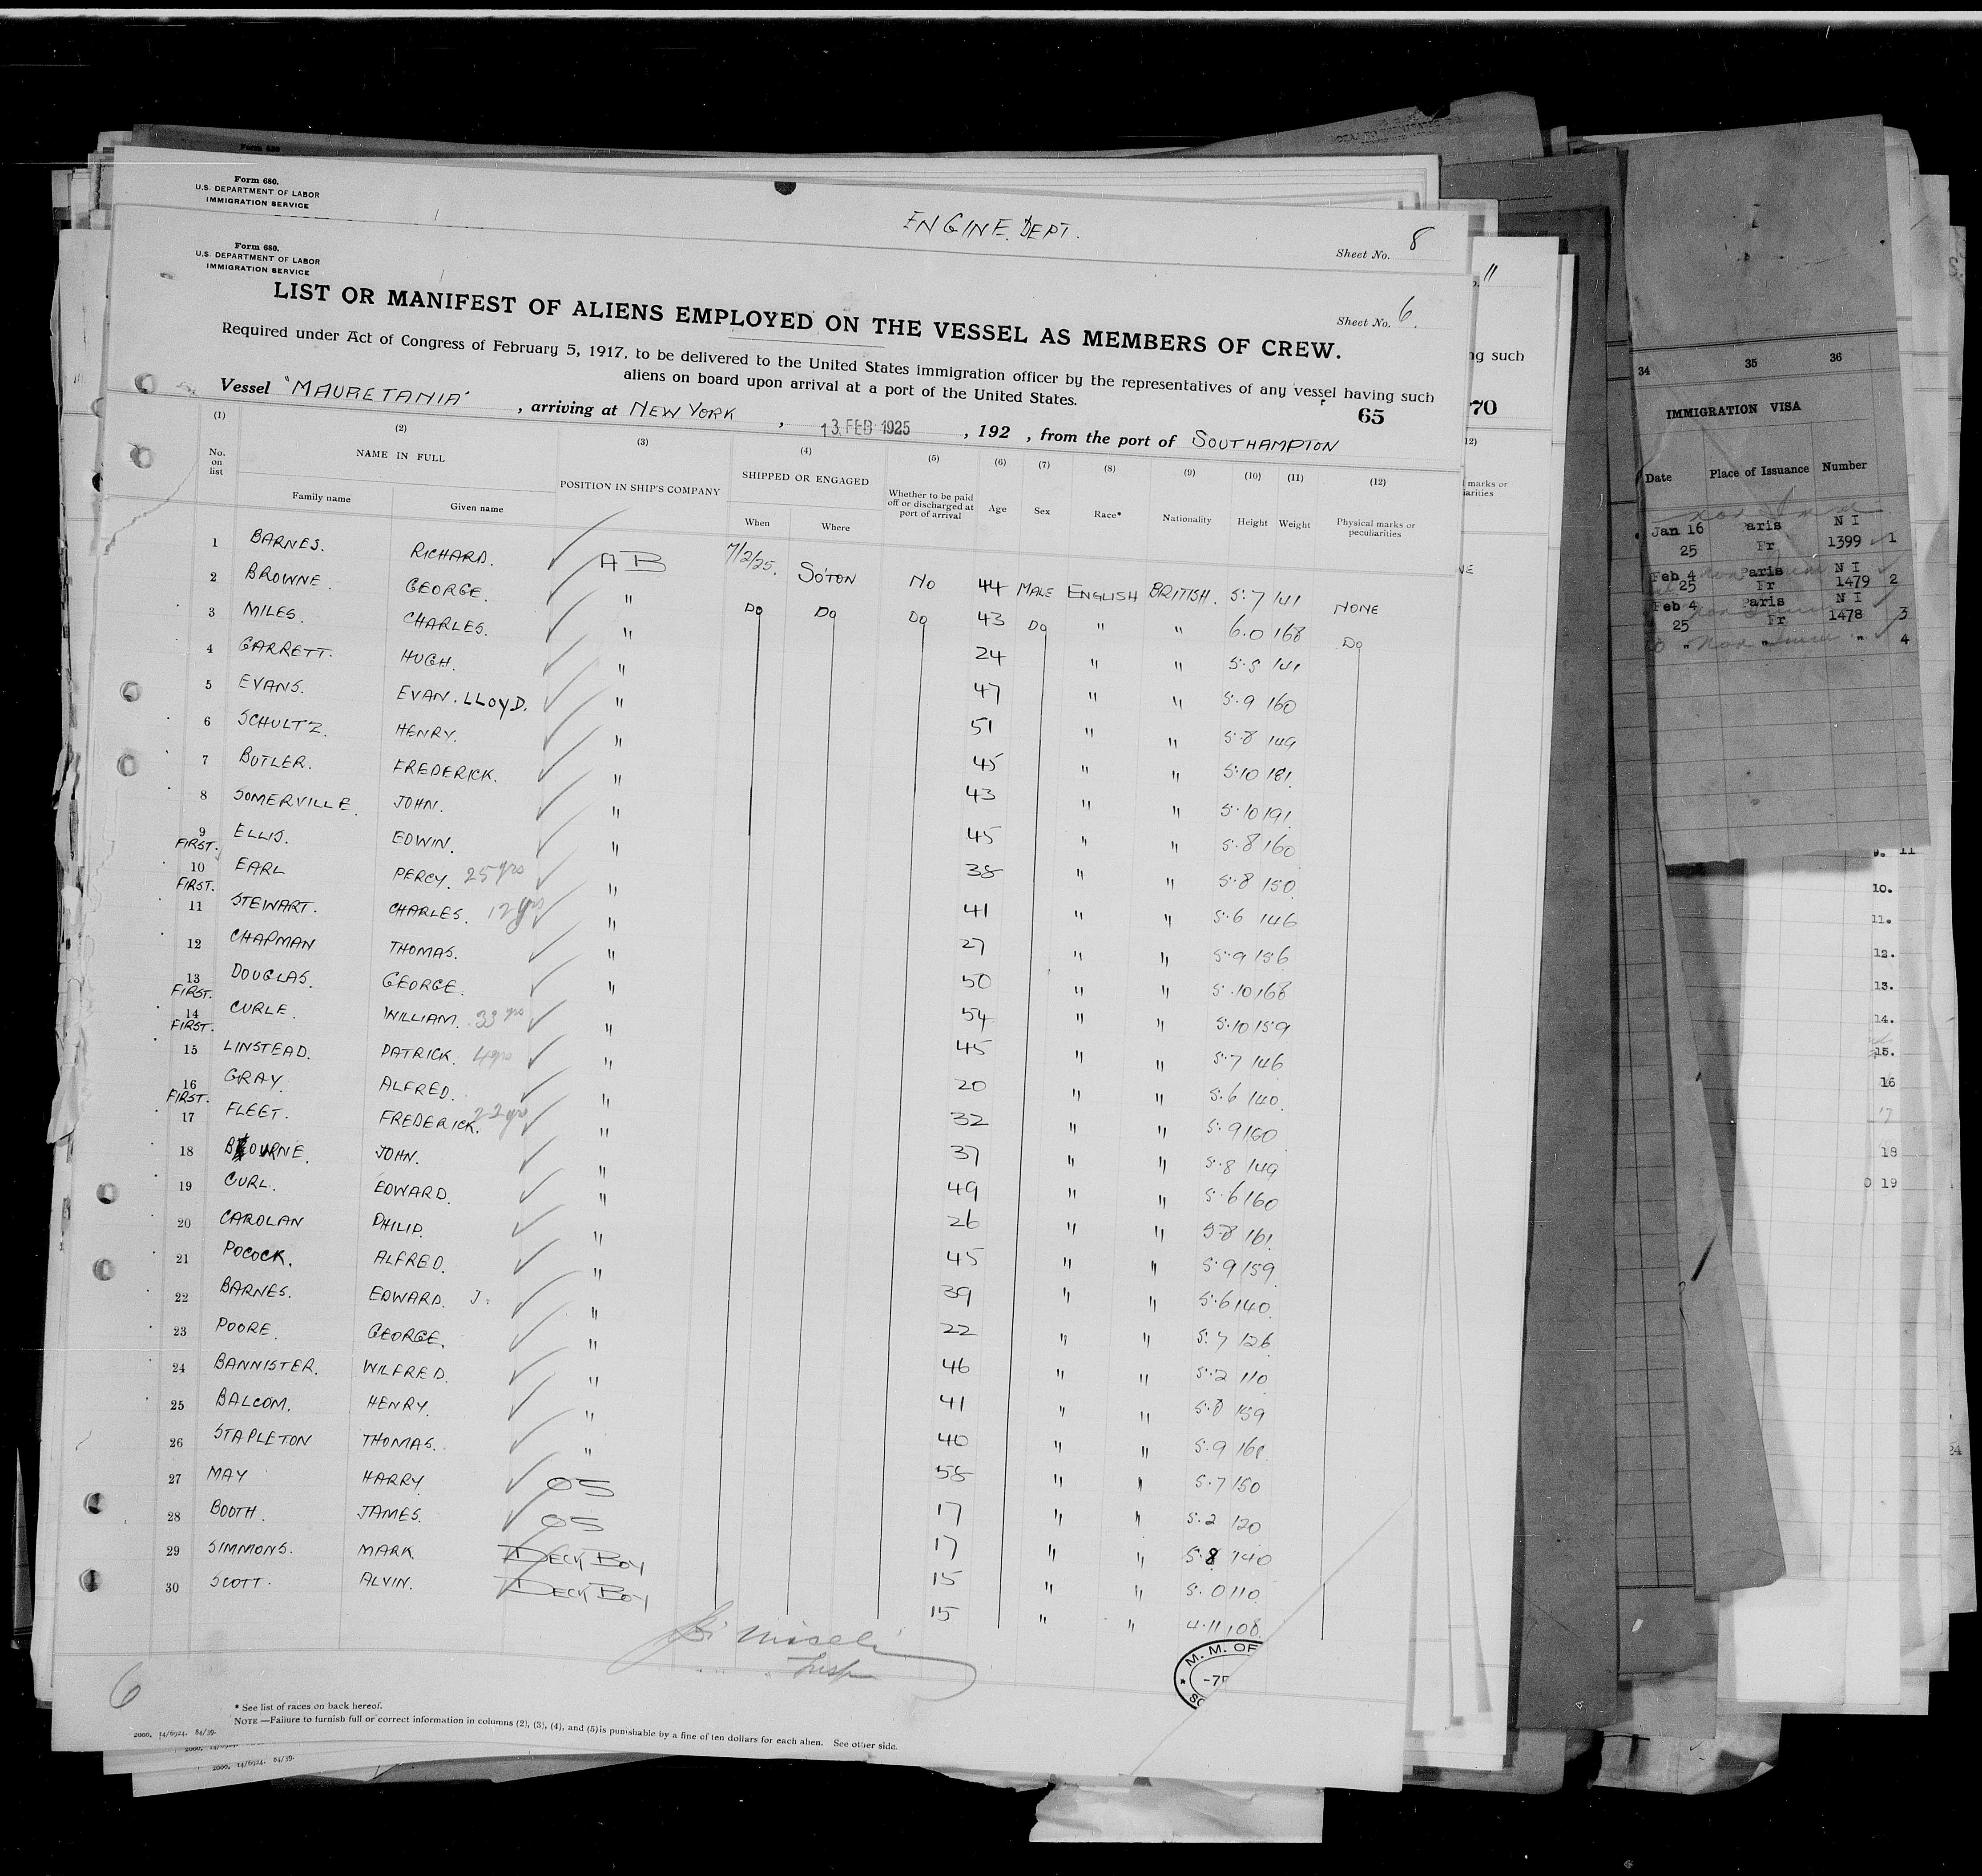 Form 680.
U.S. DEPARTMENT OF LABOR
IMMIGRATION SERVICE
ENGINE. DEPT.
Sheet No. 8
Form 680.
U.S. DEPARTMENT OF LABOR
IMMIGRATION SERVICE
LIST OR MANIFEST OF ALIENS EMPLOYED ON THE VESSEL AS MEMBERS OF CREW.
Sheet No. 6.
Required under Act of Congress of February 5, 1917, to be delivered to the United States immigration officer by the representatives of any vessel having such
aliens on board upon arrival at a port of the United States.
65
Vessel "MAURETANIA" , arriving at NEW YORK , 13 FEB 1925 , 192 , from the port of SOUTHAMPTON
(1) (2) (3) (4) (5) (6) (7) (8) (9) (10) (11) (12)
No. on list NAME IN FULL POSITION IN SHIP'S COMPANY SHIPPED OR ENGAGED Whether to be paid off or discharged at port of arrival Age Sex Race* Nationality Height Weight Physical marks or peculiarities
Family name Given name When Where
1 BARNES. RICHARD. AB 7/2/25. SO'TON NO 44 MALE ENGLISH BRITISH. 5.7 141 NONE
2 BROWNE. GEORGE. " DO DO DO 43 DO " " 6.0 168 DO
3 MILES. CHARLES. " 24 " " 5.5 141
4 GARRETT. HUGH. " 47 " " 5.9 160
5 EVANS. EVAN. LLOYD. " 51 " " 5.8 149
6 SCHULTZ. HENRY. " 45 " " 5.10 181.
7 BUTLER. FREDERICK. " 43 " " 5.10 191.
8 SOMERVILLE. JOHN. " 45 " " 5.8 160
9 FIRST. ELLIS. EDWIN. " 38 " " 5.8 150.
10 FIRST. EARL PERCY. 25 yrs " 41 " " 5.6 146
11 STEWART. CHARLES. 12 yrs " 27 " " 5.9 156
12 CHAPMAN THOMAS. " 50 " " 5.10 168
13 FIRST. DOUGLAS. GEORGE. " 54 " " 5.10 159
14 FIRST. CURLE. WILLIAM. 33 yrs " 45 " " 5.7 146
15 LINSTEAD. PATRICK. 4 yrs " 20 " " 5.6 140.
16 FIRST. GRAY. ALFRED. " 32 " " 5.9 160
17 FLEET. FREDERICK. 22 yrs " 37 " " 5.8 149
18 BOURNE. JOHN. " 49 " " 5.6 160
19 CURL. EDWARD. " 26 " " 5.8 161.
20 CAROLAN PHILIP. " 45 " " 5.9 159.
21 POCOCK. ALFRED. " 39 " " 5.6 140.
22 BARNES. EDWARD. J. " 22 " " 5.7 126
23 POORE. GEORGE. " 46 " " 5.2 110
24 BANNISTER. WILFRED. " 41 " " 5.8 159
25 BALCOM. HENRY. " 40 " " 5.9 168
26 STAPLETON THOMAS. " 58 " " 5.7 150
27 MAY HARRY OS 17 " " 5.2 120
28 BOOTH. JAMES. OS 17 " " 5.8 140
29 SIMMONS. MARK. DECK BOY 15 " " 5.0 110.
30 SCOTT. ALVIN. DECK BOY 15 " " 4.11 108.
Insp
M. M. OF
-7F
SO
6
* See list of races on back hereof.
NOTE —Failure to furnish full or correct information in columns (2), (3), (4), and (5) is punishable by a fine of ten dollars for each alien. See other side.
2000. 14/6924. 84/39.
2000. 14/6924. 84/39.
2000. 14/6924. 84/39.
11
ng such
70
12)
l marks or
iarities
NE
34 35 36
IMMIGRATION VISA
Date Place of Issuance Number
Jan 16 25 Paris Fr N I 1399 1
Feb 4 25 Paris Fr N I 1479 2
Feb 4 25 Paris Fr N I 1478 3
" " " 4
9. 11
10.
11.
12.
13.
14.
15.
16
17
18
0 19
24